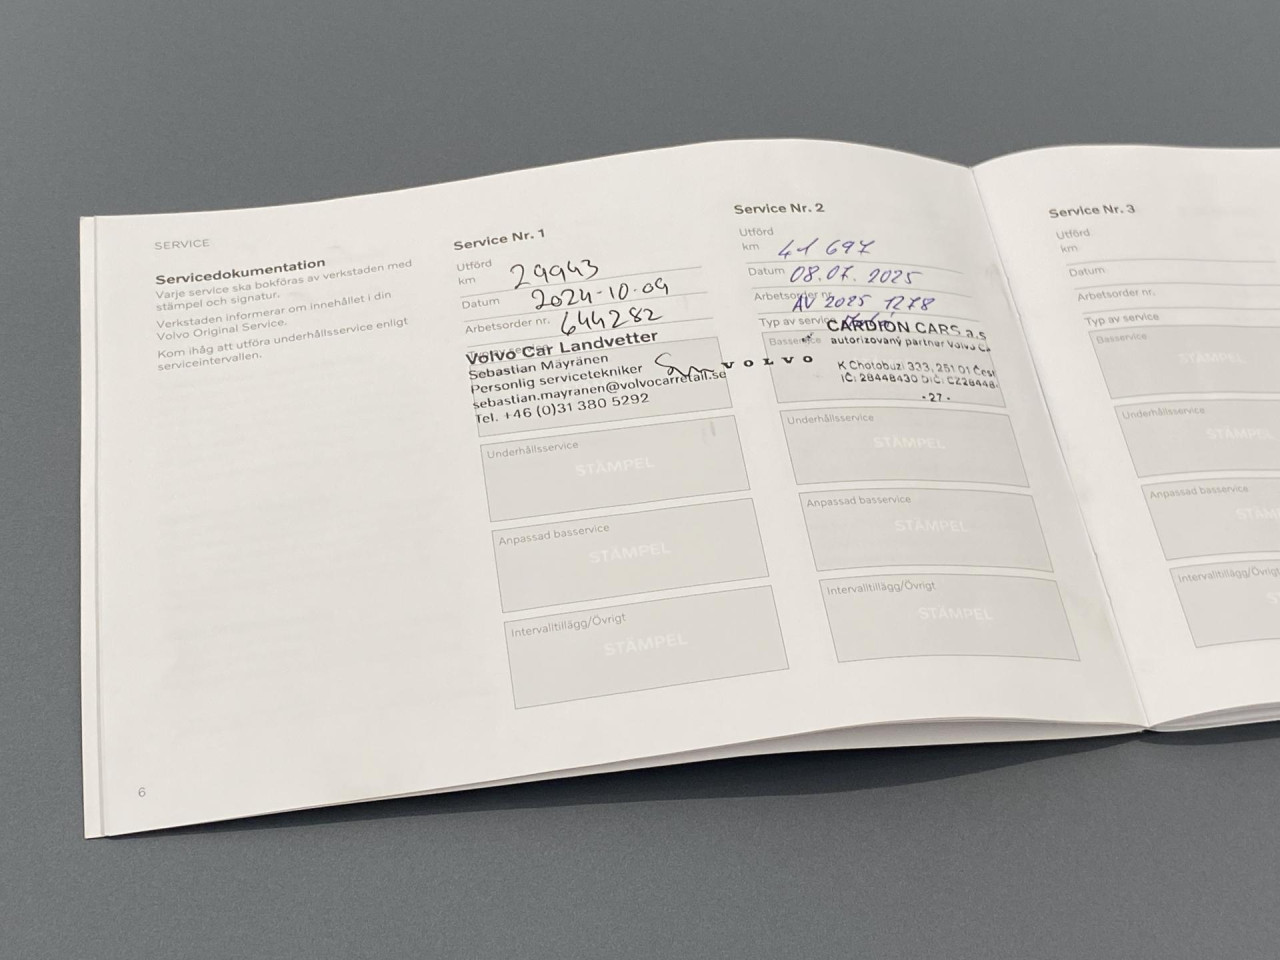 SERVICE
Servicedokumentation
Varje service ska bokföras av verkstaden med
stämpel och signatur.
Verkstaden informerar om innehållet i din
Volvo Original Service.
Kom ihåg att utföra underhållsservice enligt
serviceintervallen.
6
Service Nr. 1
Utförd
km 29943
Datum 2024-10-09
Arbetsorder nr. 644282
Volvo Car Landvetter
Sebastian Mäyränen
Personlig servicetekniker
sebastian.mayranen@volvocarretail.se
Tel. +46 (0)31 380 5292
Underhållsservice
STÄMPEL
Anpassad basservice
STÄMPEL
Intervalltillägg/Övrigt
STÄMPEL
Service Nr. 2
Utförd
km 41 697
Datum 08.07. 2025
Arbetsorder nr. AV 2025 1278
Typ av service
CARDION CARS a.s
Basservice
autorizovaný partner Volvo
VOLVO
K Chotobuzi 333, 251 01
IČ: 28448430 DIČ: CZ28448
-27-
Underhållsservice
STÄMPEL
Anpassad basservice
STÄMPEL
Intervalltillägg/Övrigt
STÄMPEL
Service Nr. 3
Utförd
km
Datum
Arbetsorder nr.
Typ av service
Basservice
STÄMPEL
Underhållsservice
STÄMPEL
Anpassad basservice
STÄM
Intervalltillägg/Övrigt